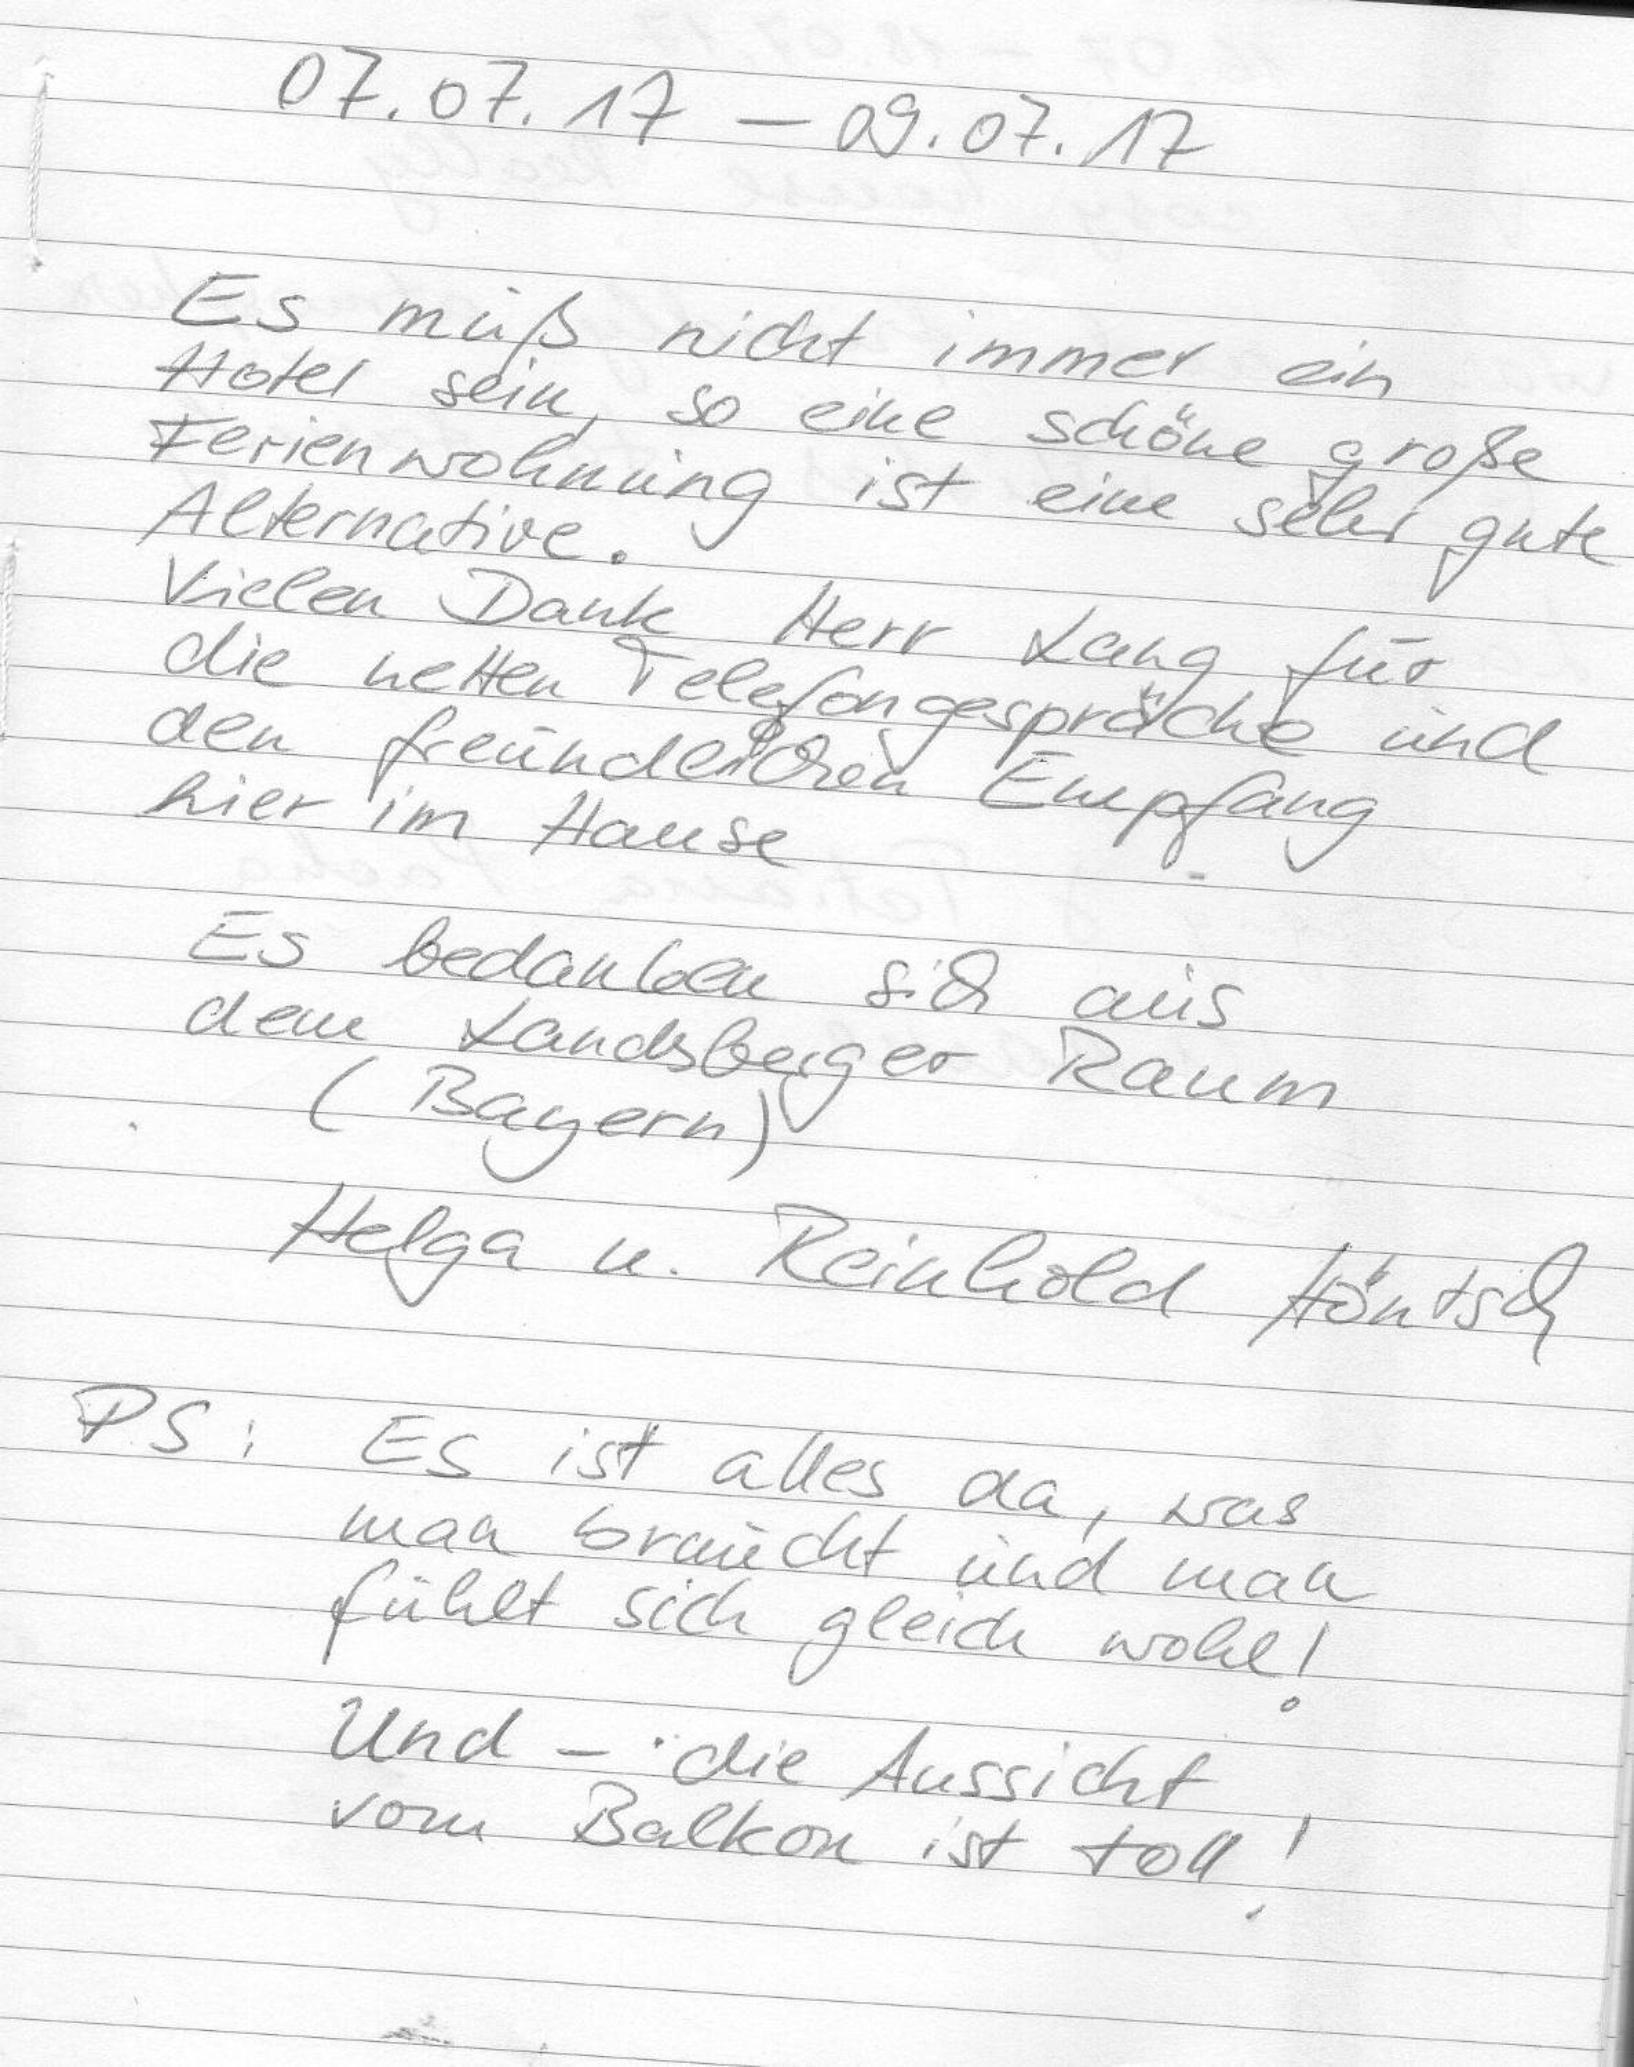 07.07.17 – 09.07.17
Es muß nicht immer ein
Hotel sein, so eine schöne große
Ferienwohnung ist eine sehr gute
Alternative.
Vielen Dank Herr Lang für
die netten Telefongespräche und
den freundlichen Empfang
hier im Hause
Es bedanken sich aus
dem Landsberger Raum
(Bayern)
Helga u. Reinhold Höntsch
PS: Es ist alles da, was
man braucht und man
fühlt sich gleich wohl!
Und – die Aussicht
vom Balkon ist toll!